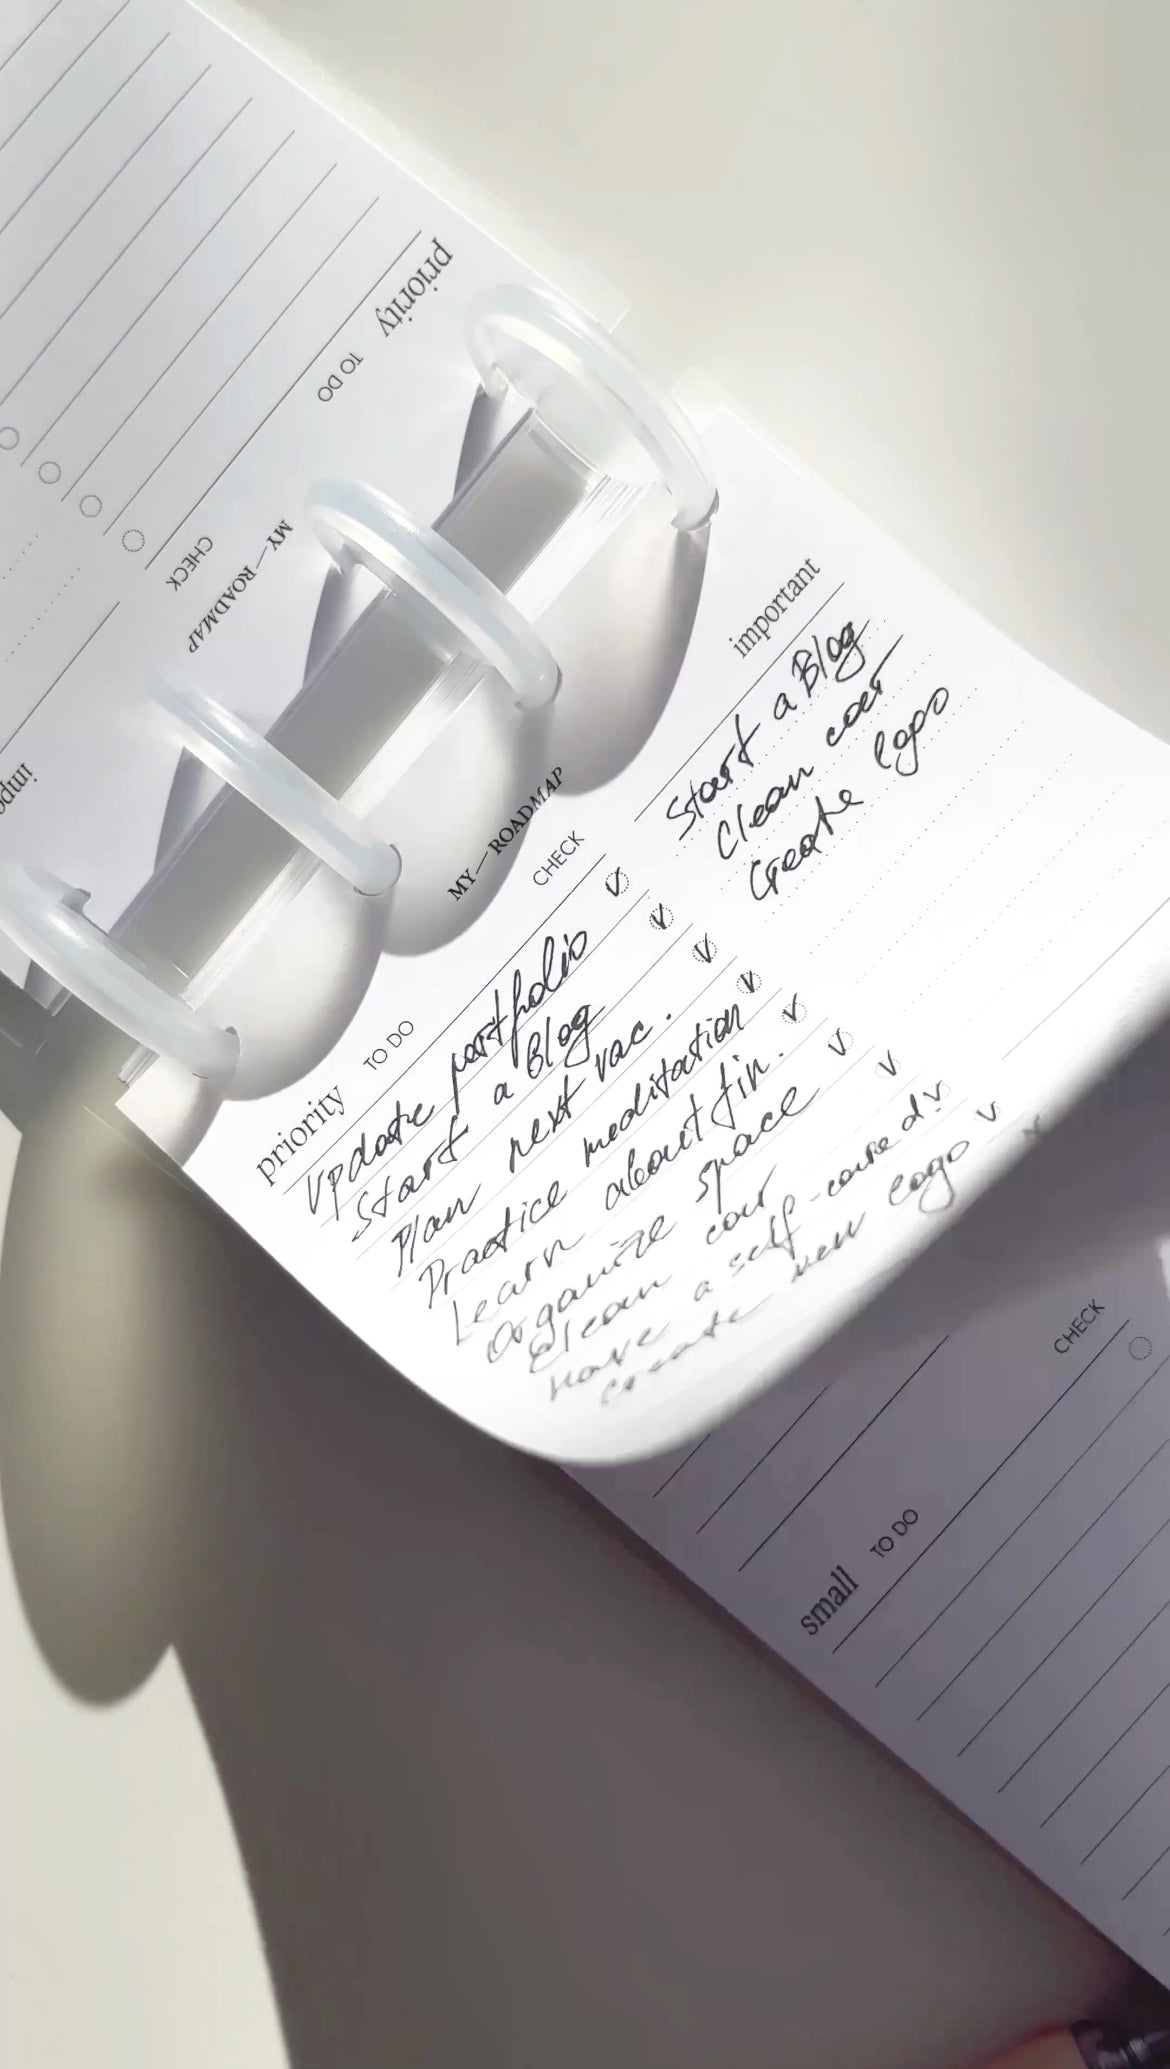 priority TO DO
CHECK
MY—ROADMAP
impo
MY—ROADMAP
priority TO DO CHECK
Update portfolio v
Start a Blog v
Plan next vac. v
Practice meditation v
Learn about fin. v
Organize space v
Clean car v
Have a self-care d. v
Create new logo v
important
Start a Blog
Clean car
Create logo
CHECK
small TO DO